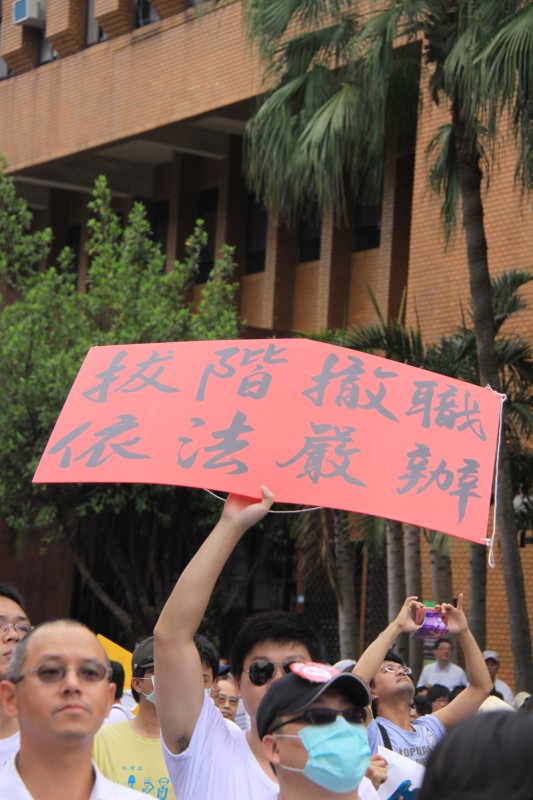 拔階撤職
依法嚴辦